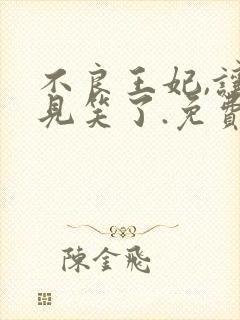 不良王妃,讓
見笑了.免費
陳金飛